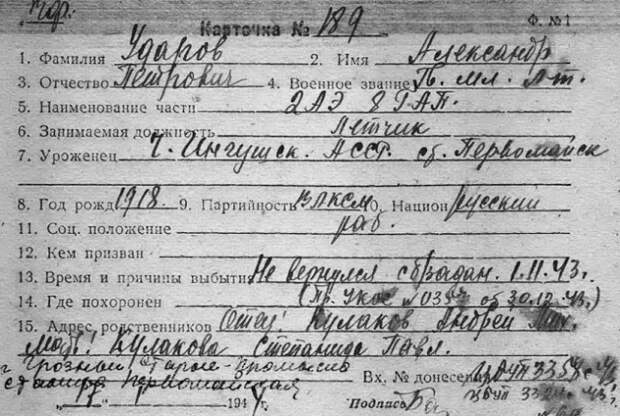 Карточка № 189 Ф. №1
1. Фамилия Ударов 2. Имя Александр
3. Отчество Петрович 4. Военное звание Гв. мл. л-т.
5. Наименование части 2 АЭ 8 ГАП.
6. Занимаемая должность Летчик
7. Уроженец Ч. Ингушск. АССР. ст. Первомайск
8. Год рожд 1918. 9. Партийность ВЛКСМ 10. Национ Русский
11. Соц. положение раб.
12. Кем призван
13. Время и причины выбыти Не вернулся с б/задан. 1.11.43г.
14. Где похоронен (Пр. УКОС №0357 от 30.12.43г.)
15. Адрес родственников Отец: Кулаков Андрей Мих.
Мать: Кулакова Степанида Павл.
г Грозный, Старые-Промысла
станица Первомайская Вх. № донесен
194 Подпись